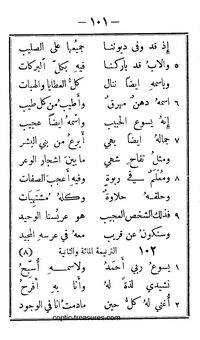 — ١٠١ —
إذ قد وفى ديوننا جميعها على الصليب
٥ والاب قد باركنا فيه بكل البركات
واسمه ايضاً ننال كل العطايا والهبات
٦ اسمه دهن مهرق وأطيب من كل طيب
إنه يسوع الحبيب واسمه ايضاً عجيب
٧ جماله ايضاً بهي أبرع من بني البشر
ومثل تفاح شهي ما بين اشجار الوعر
٨ ومعلم في ربوة وفيه أعجب الصفات
وحلقه حلاوة وكله مشتهيات
٩ فذلك الشخص العجيب هو عريسنا الوحيد
وسنكون عن قريب معه في عرسه المجيد
١٠٢ الترنيمة المائة والثانية (٨)
١ يسوع ربي أحمد ولاسمه أسبح
نشيدي لذة له وأنا به أفرح
٢ أغني له كل حين مادمت انا في الوجود
coptic-treasures.com